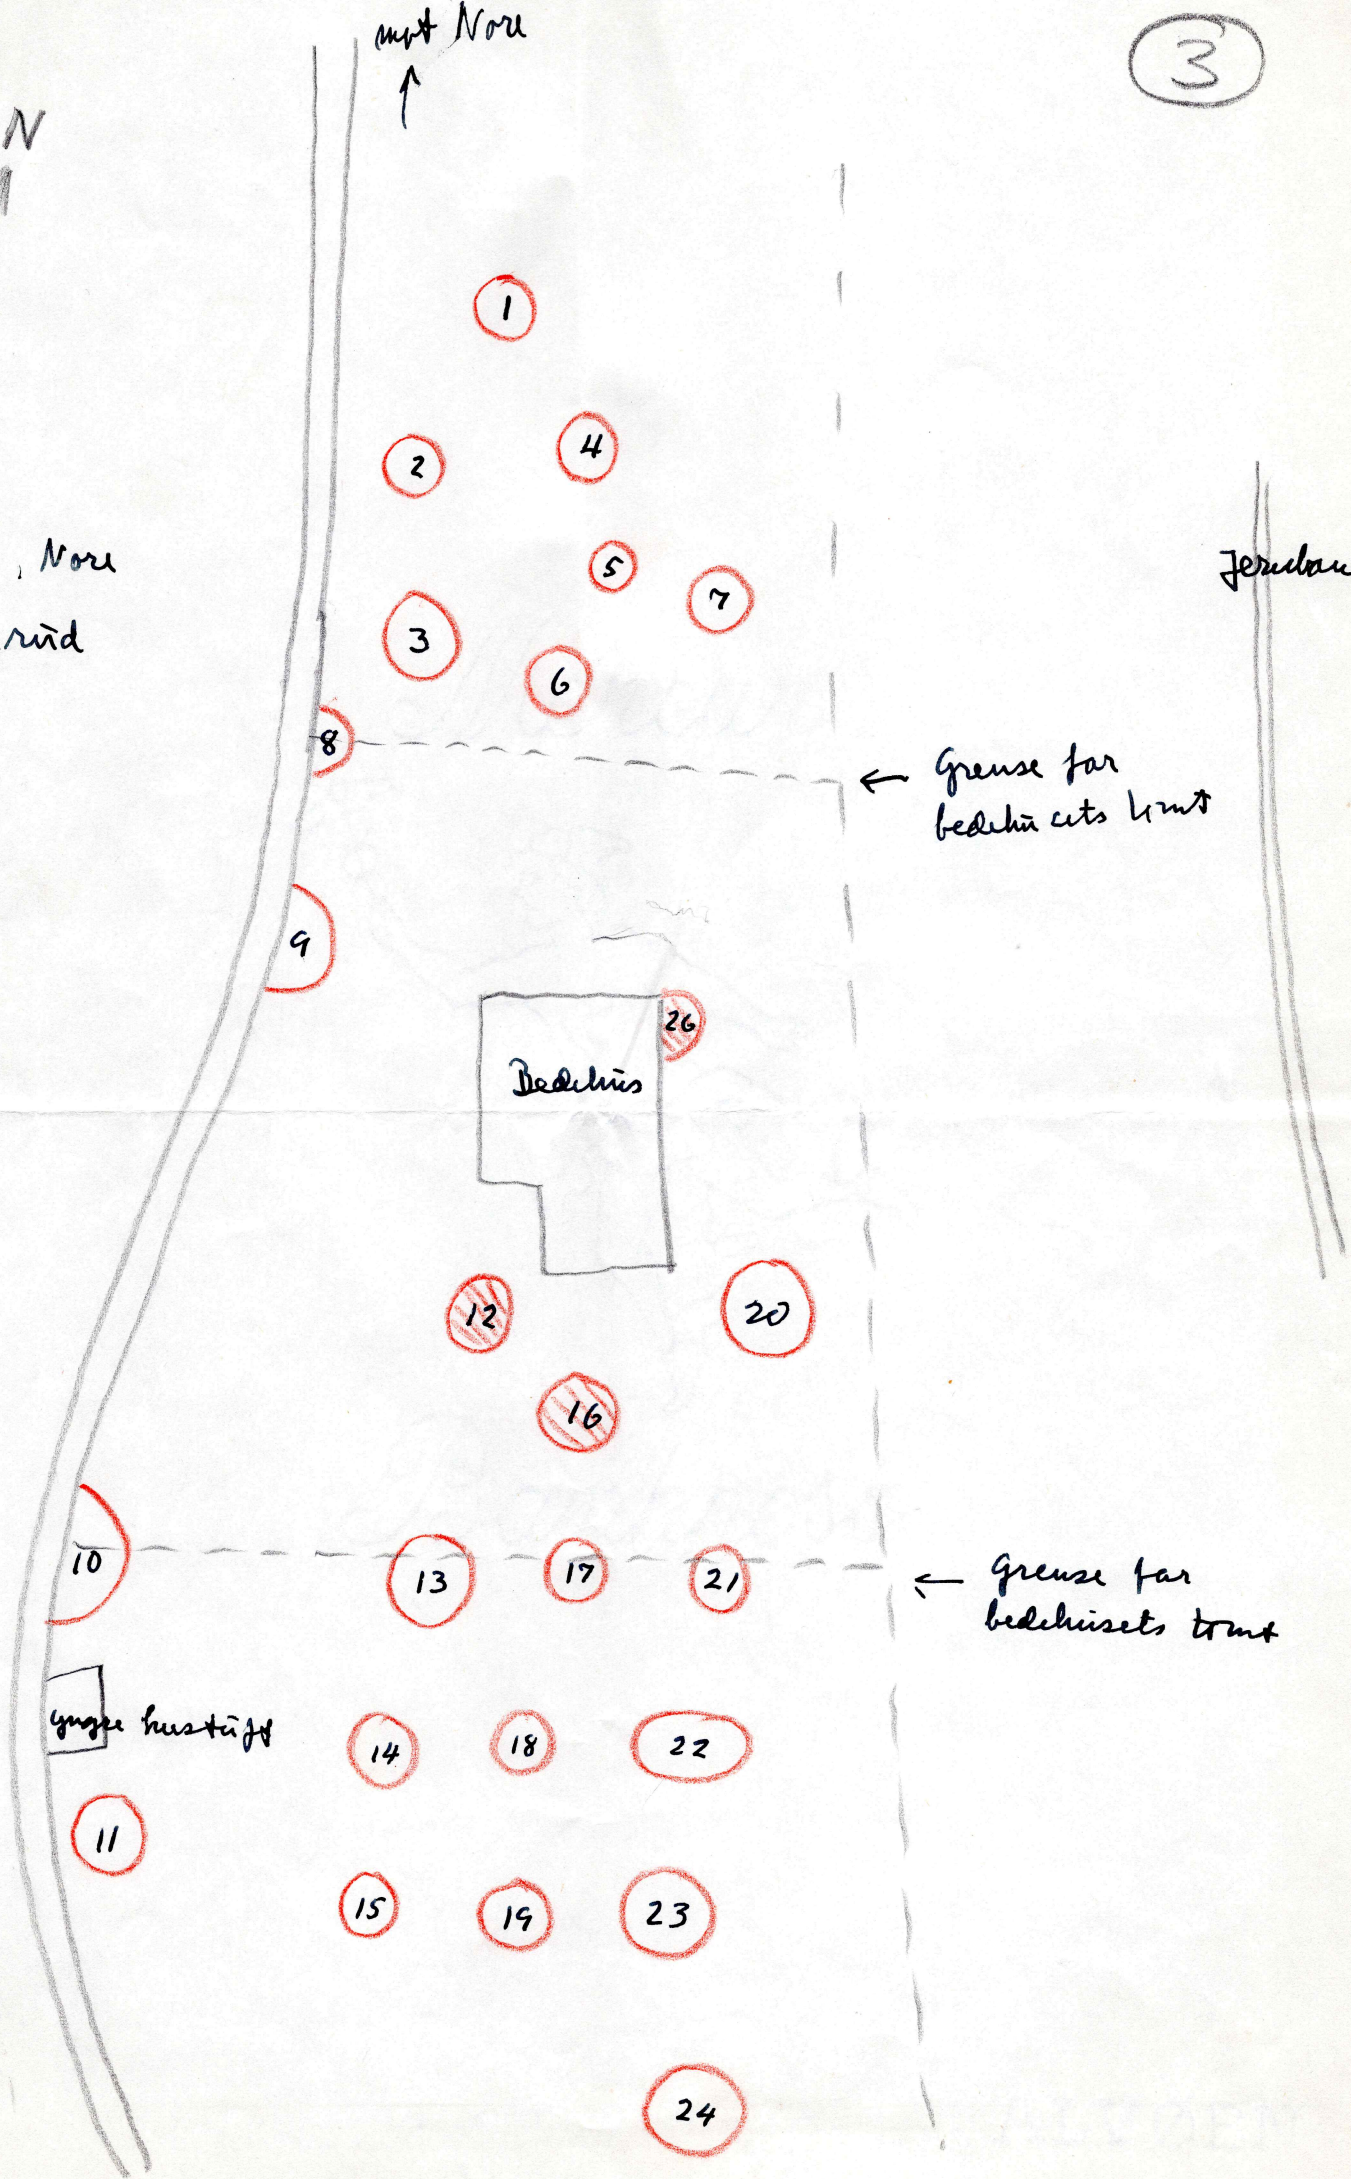 mot Nore
3
N
1
4
2
, Nore
5
7
rud
3
6
8
Grense for
bedehusets tomt
9
26
Bedehus
12
20
16
10
13
17
21
Grense for
bedehusets tomt
yngre hustuft
14
18
22
11
15
19
23
24